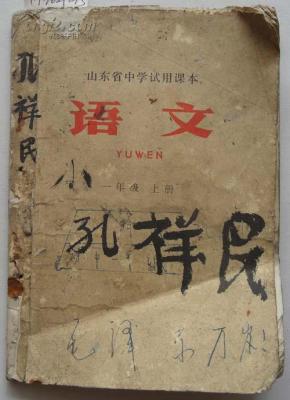 孔祥民
山东省中学试用课本
语文
YUWEN
一年级 上册
小
孔祥民
毛泽东万岁